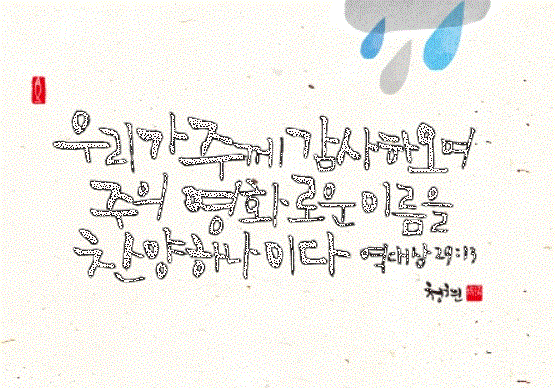 우리가 주께 감사하오며
주의 영화로운 이름을
찬양하나이다 역대상 29:13